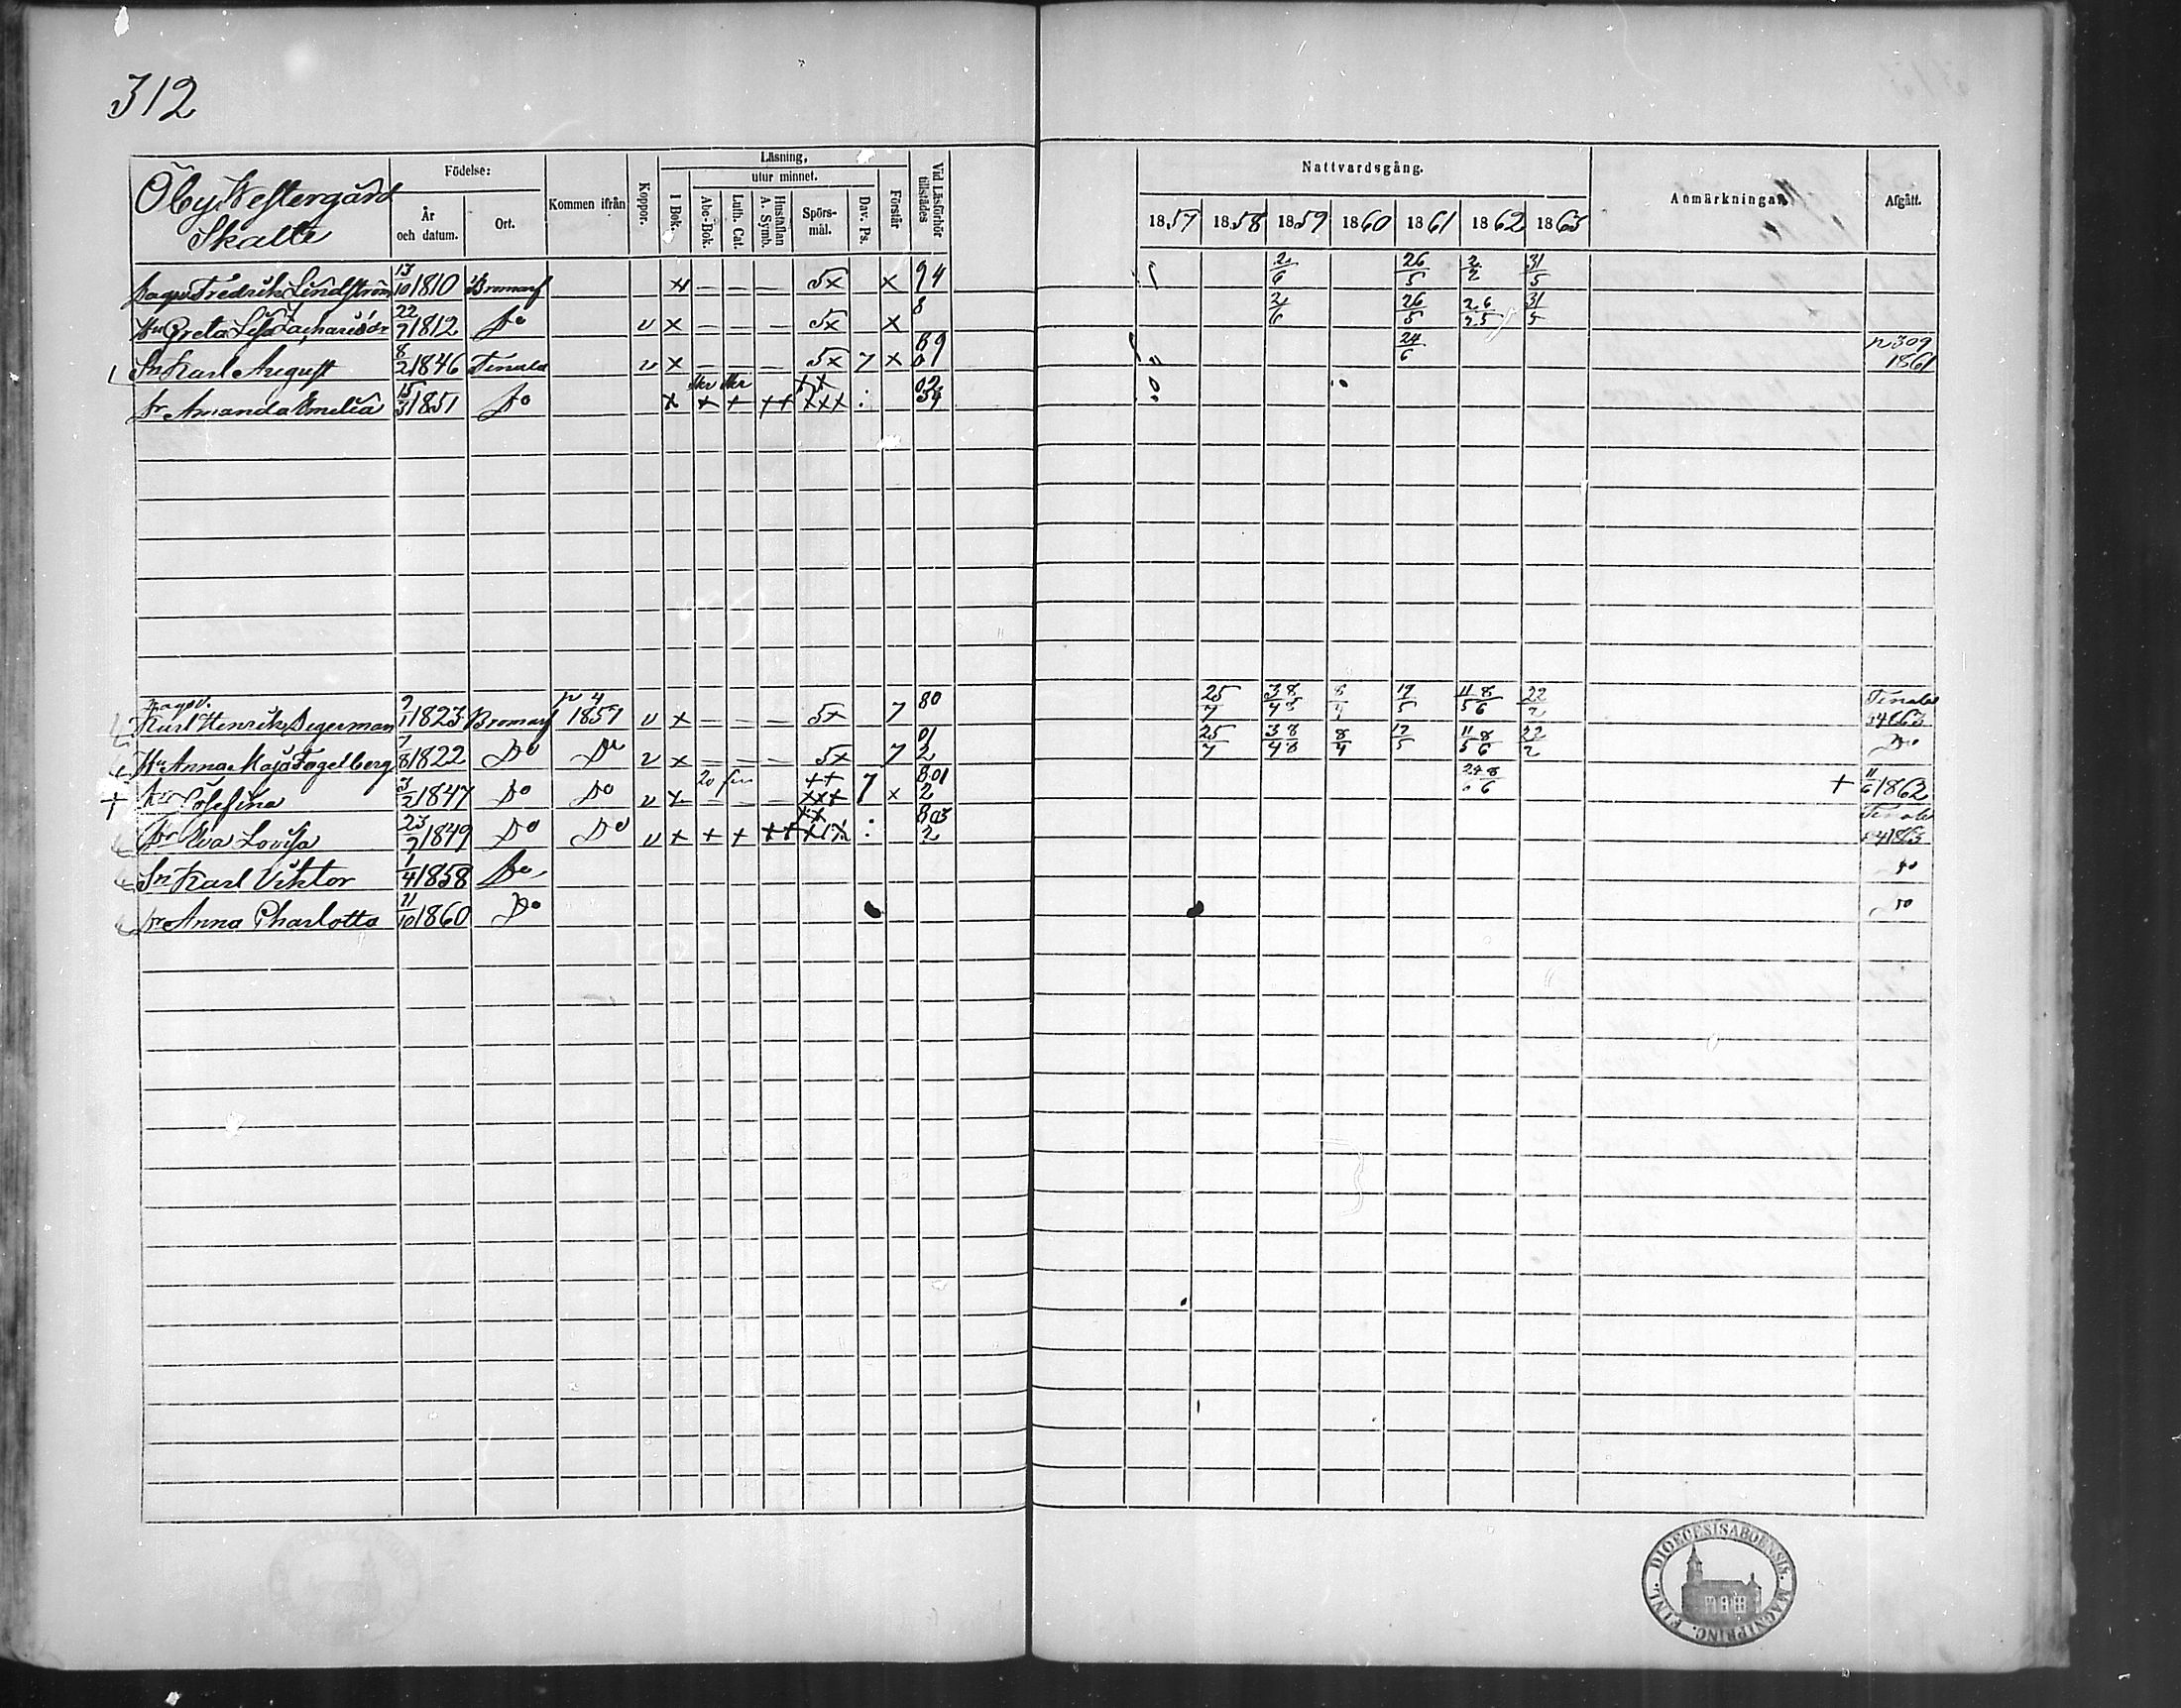 312
Öby Westergård
Skatte
Födelse:
År och datum.
Ort.
Kommen ifrån
Koppor.
Läsning,
I Bok.
utur minnet.
Abc-Bok.
Luth. Cat.
Hustaflan A. Symb.
Spörsmål.
Dav. Ps.
Förstår
Vid Läsförhör tillstädes
Nattvardsgång.
1857 1858 1859 1860 1861 1862 1863
Anmärkningar
Afgått.
Fredrik Lindström 13/10 1810 Bromarf x – – – 5x x 94 2/6 26/5 2/2 31/5
Hu Greta Lisa Zachariedr 22/7 1812 Do v x – – – 5x x 8 2/6 26/5 31/5
Sn Karl August 8/2 1846 Tenala v x – – – 5x 7 x 24/6 p 309 1861
Dr Amanda Emelia 15/3 1851 Do x + + ++ xxx :
Karl Henrik Degerman 9/11 1823 Bromarf p 4 1857 v x – – – 5x 7 80 25/7 38/48 17/5 11 8/5 6 22/2 Tenala 1863
Hu Anna Maja Fagelberg 7/8 1822 Do Do v x – – – 5x 7 01 2 25/7 38/48 8/4 17/5 11 8/5 6 22/2 Do
+ Dr Josefina 3/2 1847 Do Do v x – – – xxx 7 x 801 2 24 8/6 6 + 11/6 1862
Dr Eva Lovisa 23/7 1849 Do Do v + + + ++ : 803 2 Tenala 1863
Sn Karl Viktor 1/4 1858 Do Do
Dr Anna Charlotta 11/10 1860 Do Do
FINL. DIOECESIS ABOENSIS. MAGNI PRINC.